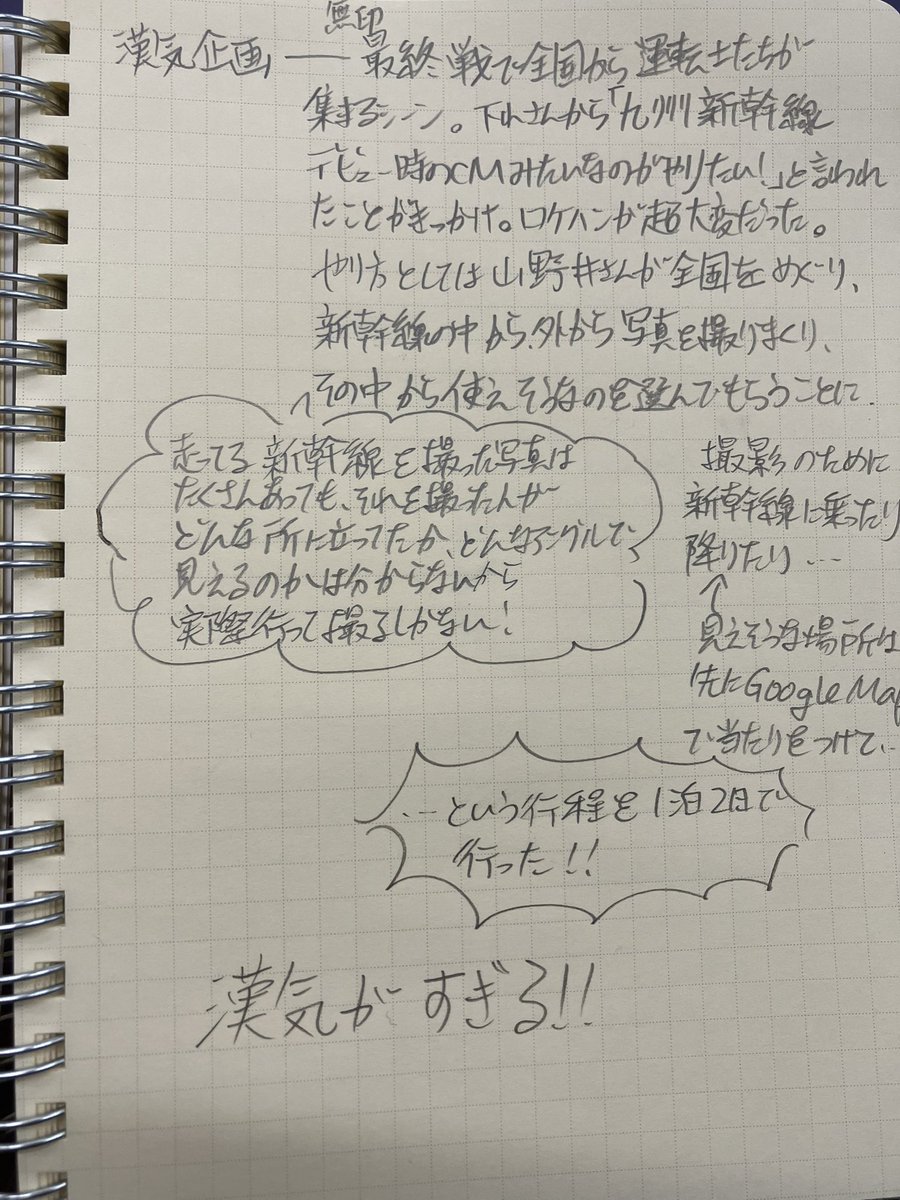 無印
漢気企画 ── 最終戦で全国から運転士たちが
集まるシーン。下山さんから「九州新幹線
デビュー時のCMみたいなのがやりたい!」と言われ
たことがきっかけ。ロケハンが超大変だった。
やり方としては山野井さんが全国をめぐり、
新幹線の中から、外から写真を撮りまくり、
その中から使えそうなのを選んでもらうことに.
走ってる新幹線を撮った写真は
たくさんあっても、それを撮った人が
どんな所に立ってたか、どんなアングルで
見えるのかは分からないから
実際行って撮るしかない!
撮影のために
新幹線に乗ったり
降りたり…
↑
見えそうな場所は
先にGoogle Map
で当たりをつけて…
…という行程を1泊2日で
行った!!
漢気がすぎる!!